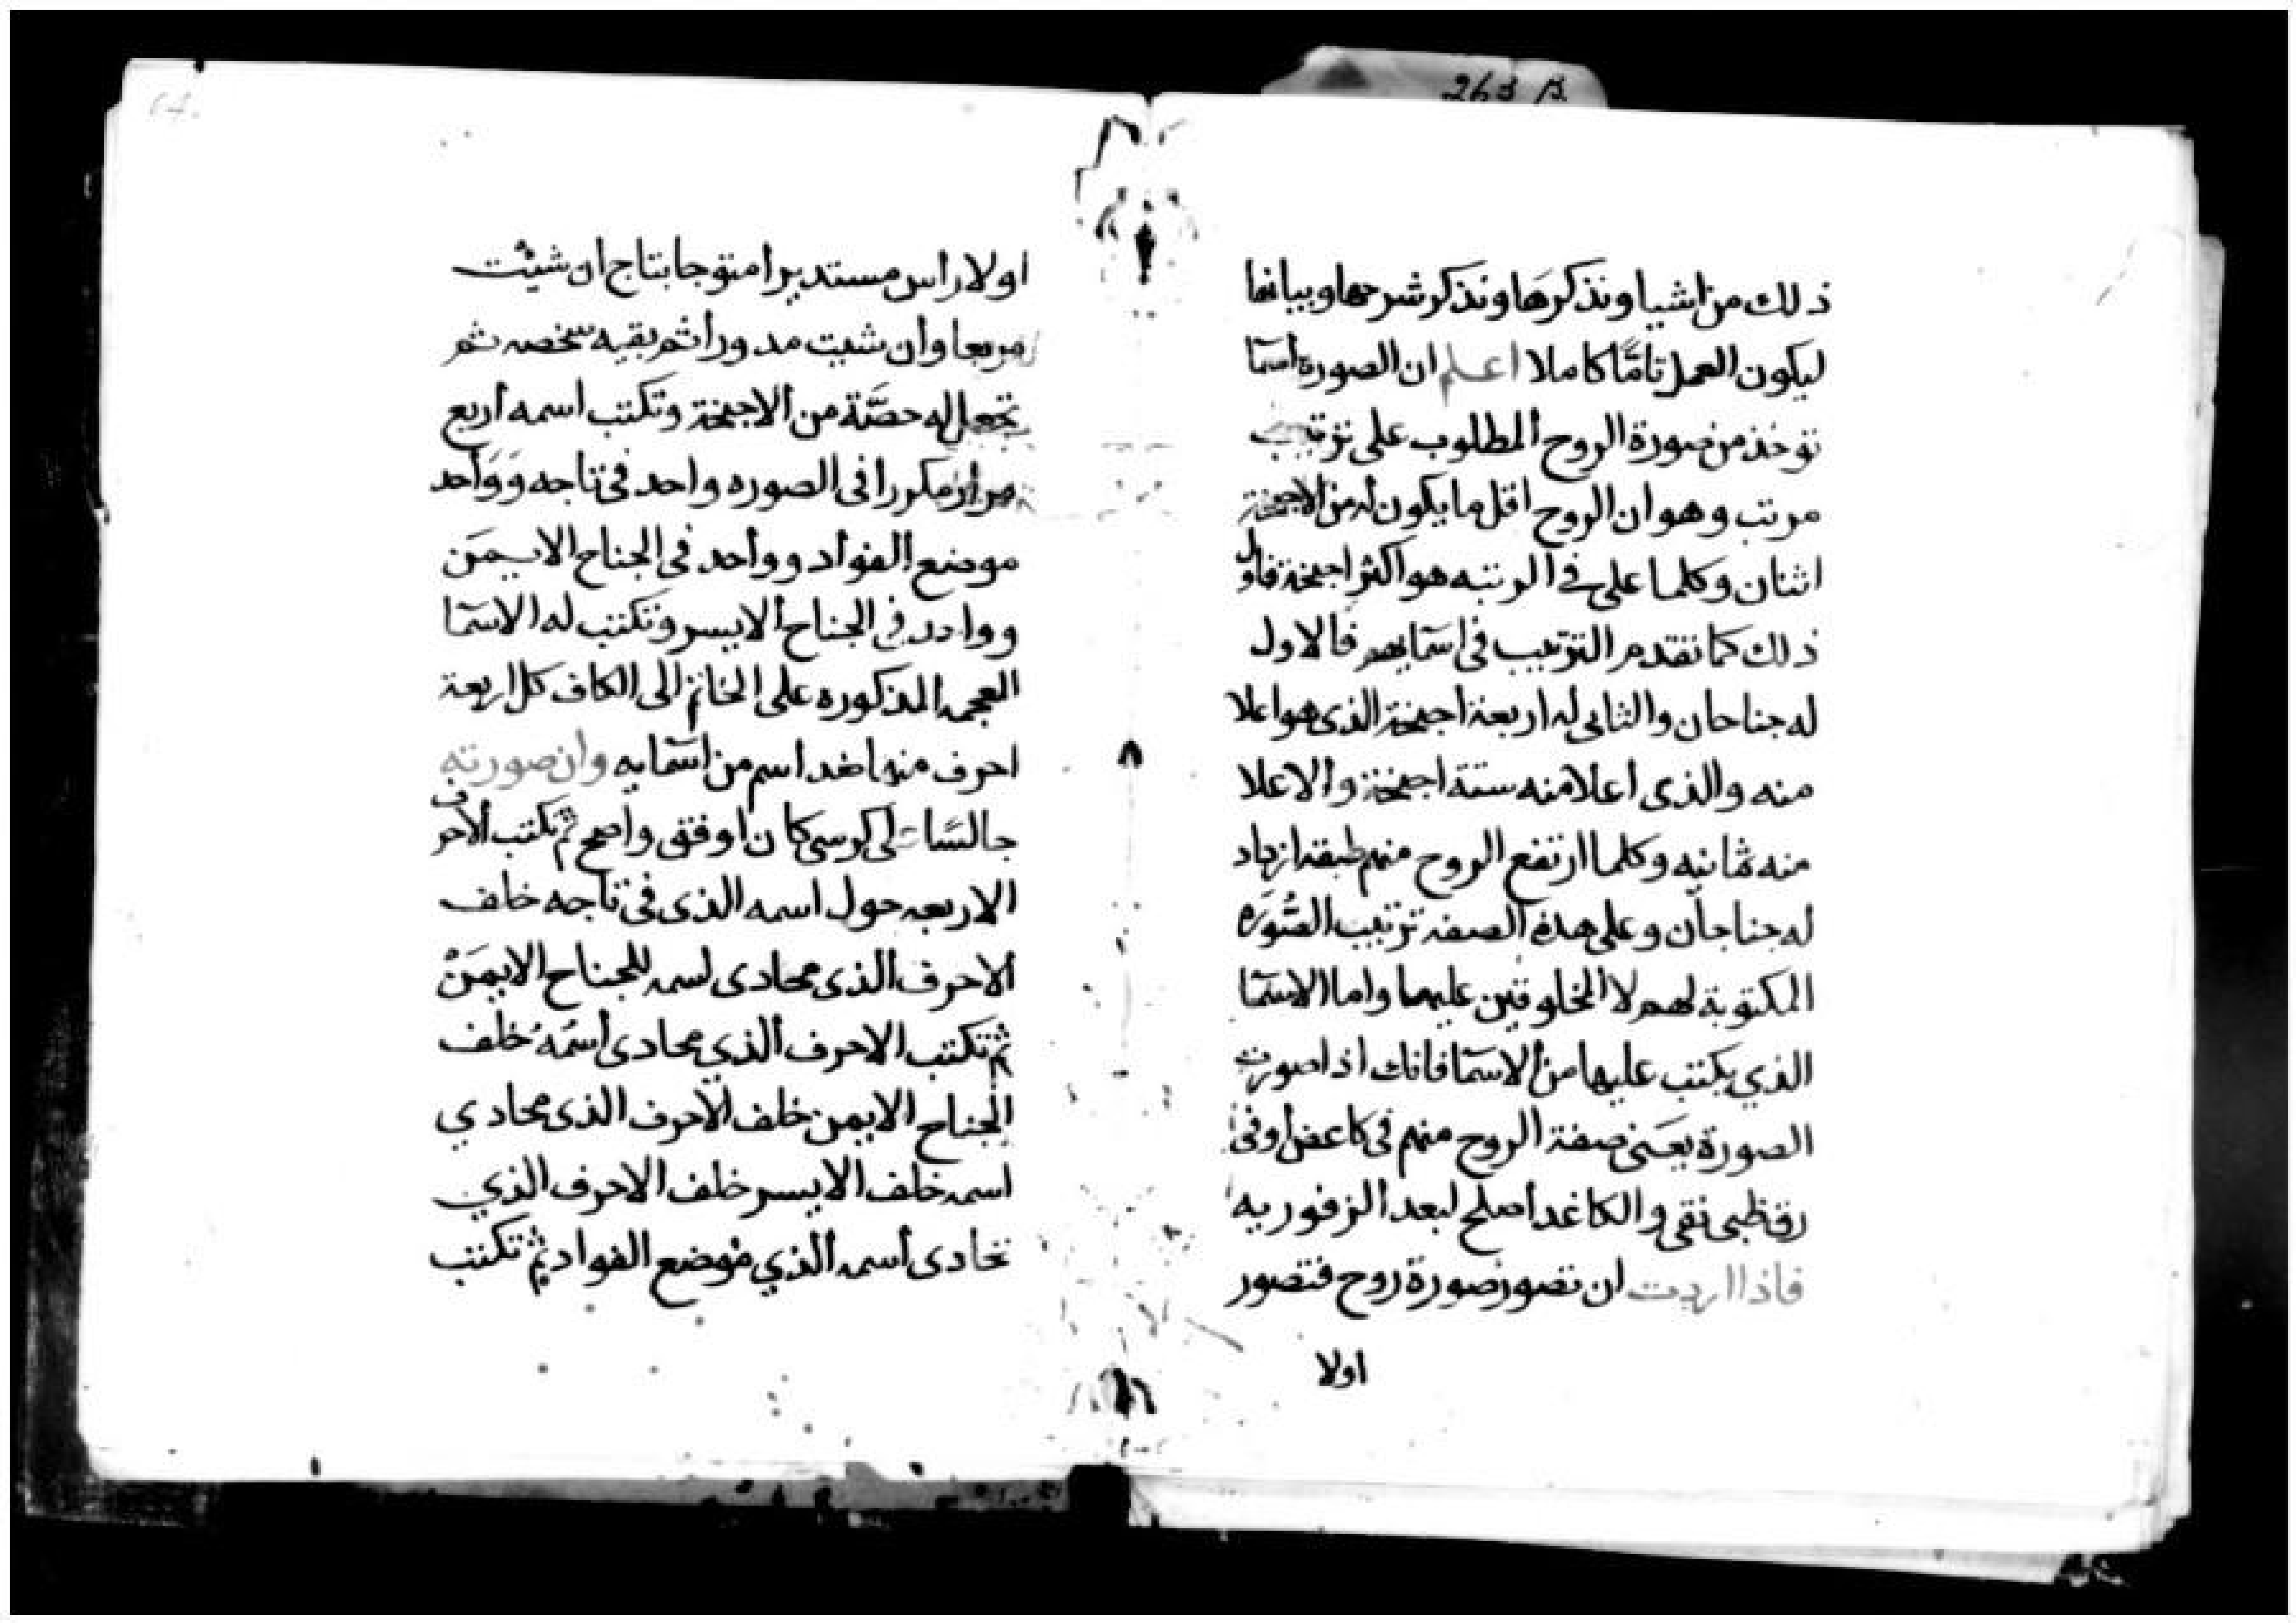 263 B
ذلك من اشيا ونذكرها ونذكر شرحها وبيانها
ليكون العمل تامًّا كاملا اعلم ان الصورة اسمآ
توخذ من صورة الروح المطلوب على ترتيب
مرتب وهو ان الروح اقل ما يكون له من الاجنحة
اثنان وكلما على في الرتبه هو اكثر اجنحة فاول
ذلك كما تقدم الترتيب فى اسمآيهم فالاول
له جناحان والثانى له اربعة اجنحة الذى هو اعلا
منه والذى اعلا منه ستة اجنحة والاعلا
منه ثمانيه وكلما ارتفع الروح منهم طبقه ازداد
له جناحان وعلى هذه الصفه ترتيب الصُّوَره
المكتوبة لهم لا المخلوقين عليهما واما الاسمآ
الذي يكتب عليها من الاسمآ فانك اذا صورت
الصورة يعنى صفة الروح منهم فى كاعض او فى
رق ظبى نقى والكاغد اصلح لبعد الزفوريه
فاذا اردت ان تصور صورة روح فتصور
اولا
64.
اولا راس مستديرا متوجا بتاج ان شيئت
مربعا وأن شيت مدورا ثم بقيه شخصه ثم
تجعل له حصَّة من الاجنحة وتكتب اسمه أربع
مرار مكررا فى الصوره واحد فى تاجه وَوَاحد
موضع الفؤاد وواحد فى الجناح الايمَن
وواحد فى الجناح الايسر وتكتب له الاسمآ
العجمه المذكوره على الخاتم الى الكاف كل اربعة
احرف منها ضد اسم من اسمآيه وان صورته
جالسًا على كرسى كان اوفق واصح ثم تكتب الأحرف
الاربعه حول اسمه الذى فى تاجه خلف
الاحرف الذى محادى لسمه للجناح الايمَنْ
ثم تكتب الاحرف الذي محادى أسمُه خلف
الجناح الايمن خلف الأحرف الذى محادي
اسمه خلف الايسر خلف الاحرف الذي
تحادى أسمه الذي موضع الفواد ثم تكتب